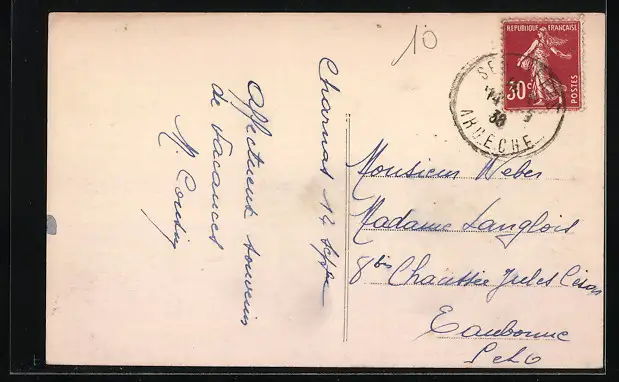 10
RÉPUBLIQUE FRANÇAISE
30c
POSTES
ARDECHE
38
14 Septe
Affectueux souvenirs
de vacances
Monsieur Weber
Madame Langlois
8bis Chaussée Jules César
Eaubonne
S et O